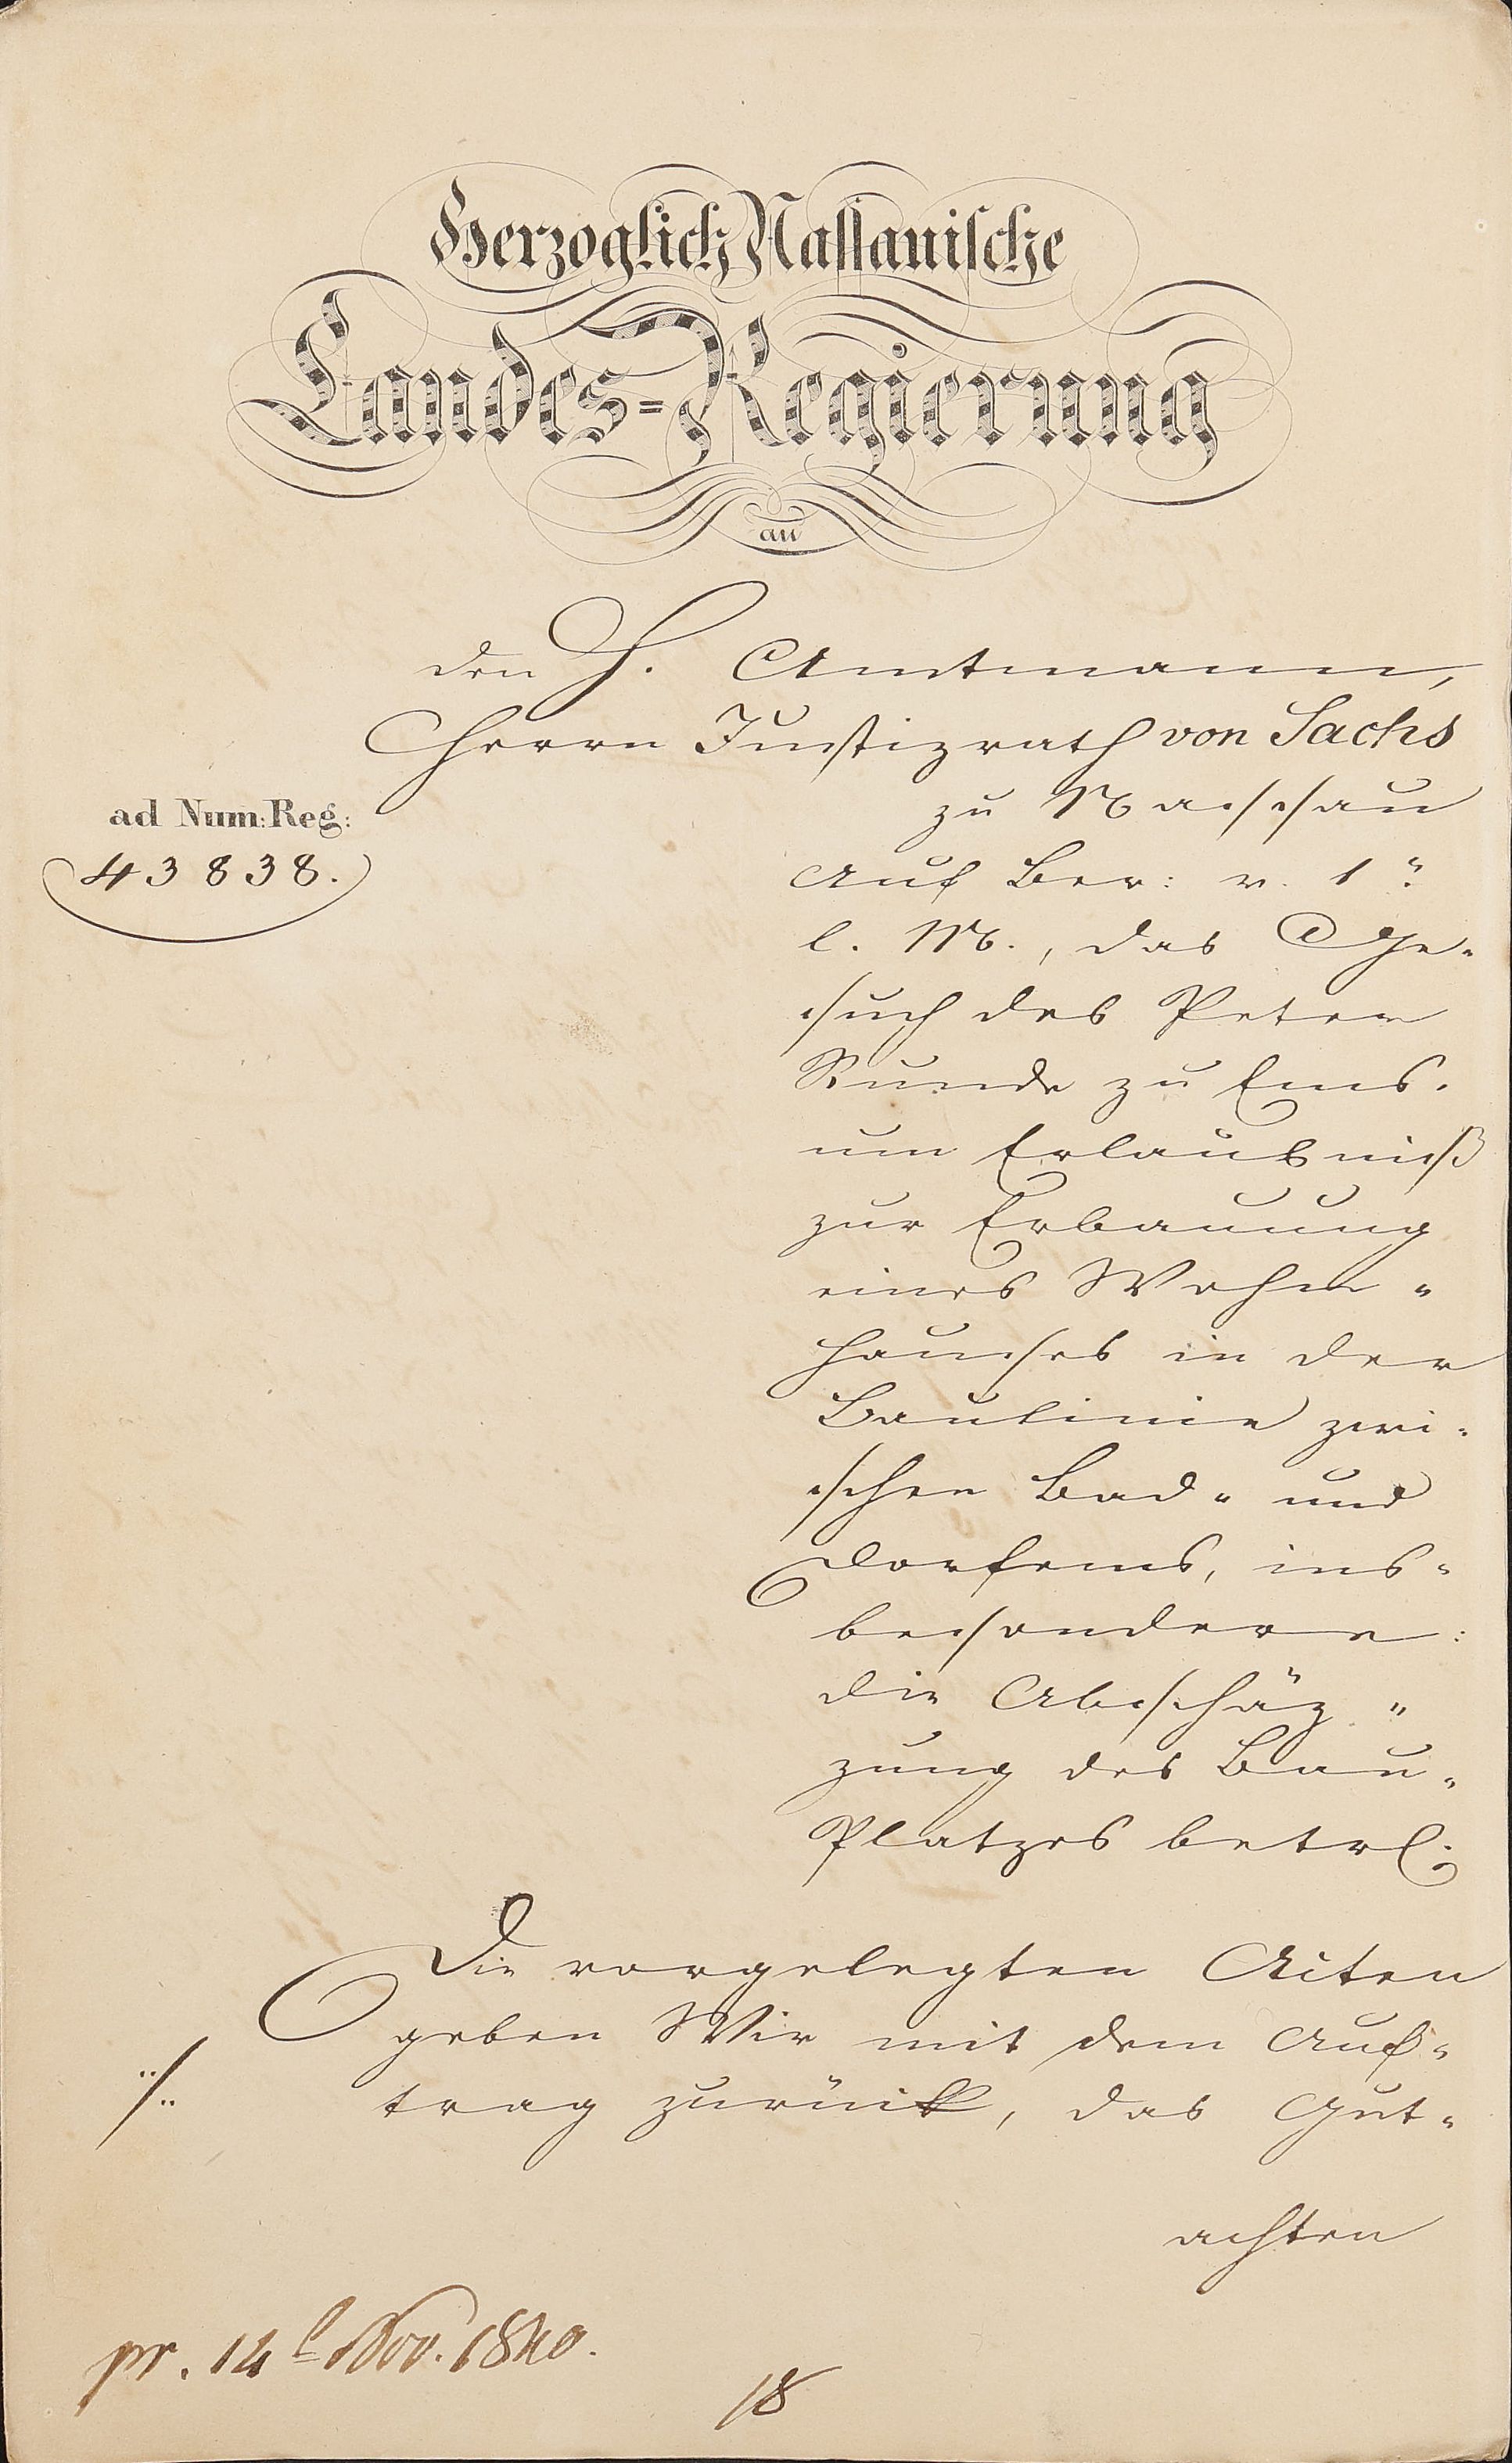 Herzoglich Nassauische
Landes=Regierung
an
den H. Amtmann,
Herrn Justizrath von Sachs
zu Nassau
ad Num: Reg:
43838.
Auf Ber: v. 1"
l. M., das Ge-
such des Peter
Kunde zu Ems.
um Erlaubniß
zur Erbauung
eines Wohn-
hauses in der
Baulinie zwi-
schen Bad- und
Dorfems, ins-
besondere:
die Abschäz-
zung des Bau-
Platzes betr.
Die vorgelegten Acten
geben Wir mit dem Auf-
trag zurück, das Gut-
achten
pr. 14t Nov. 1840.
18